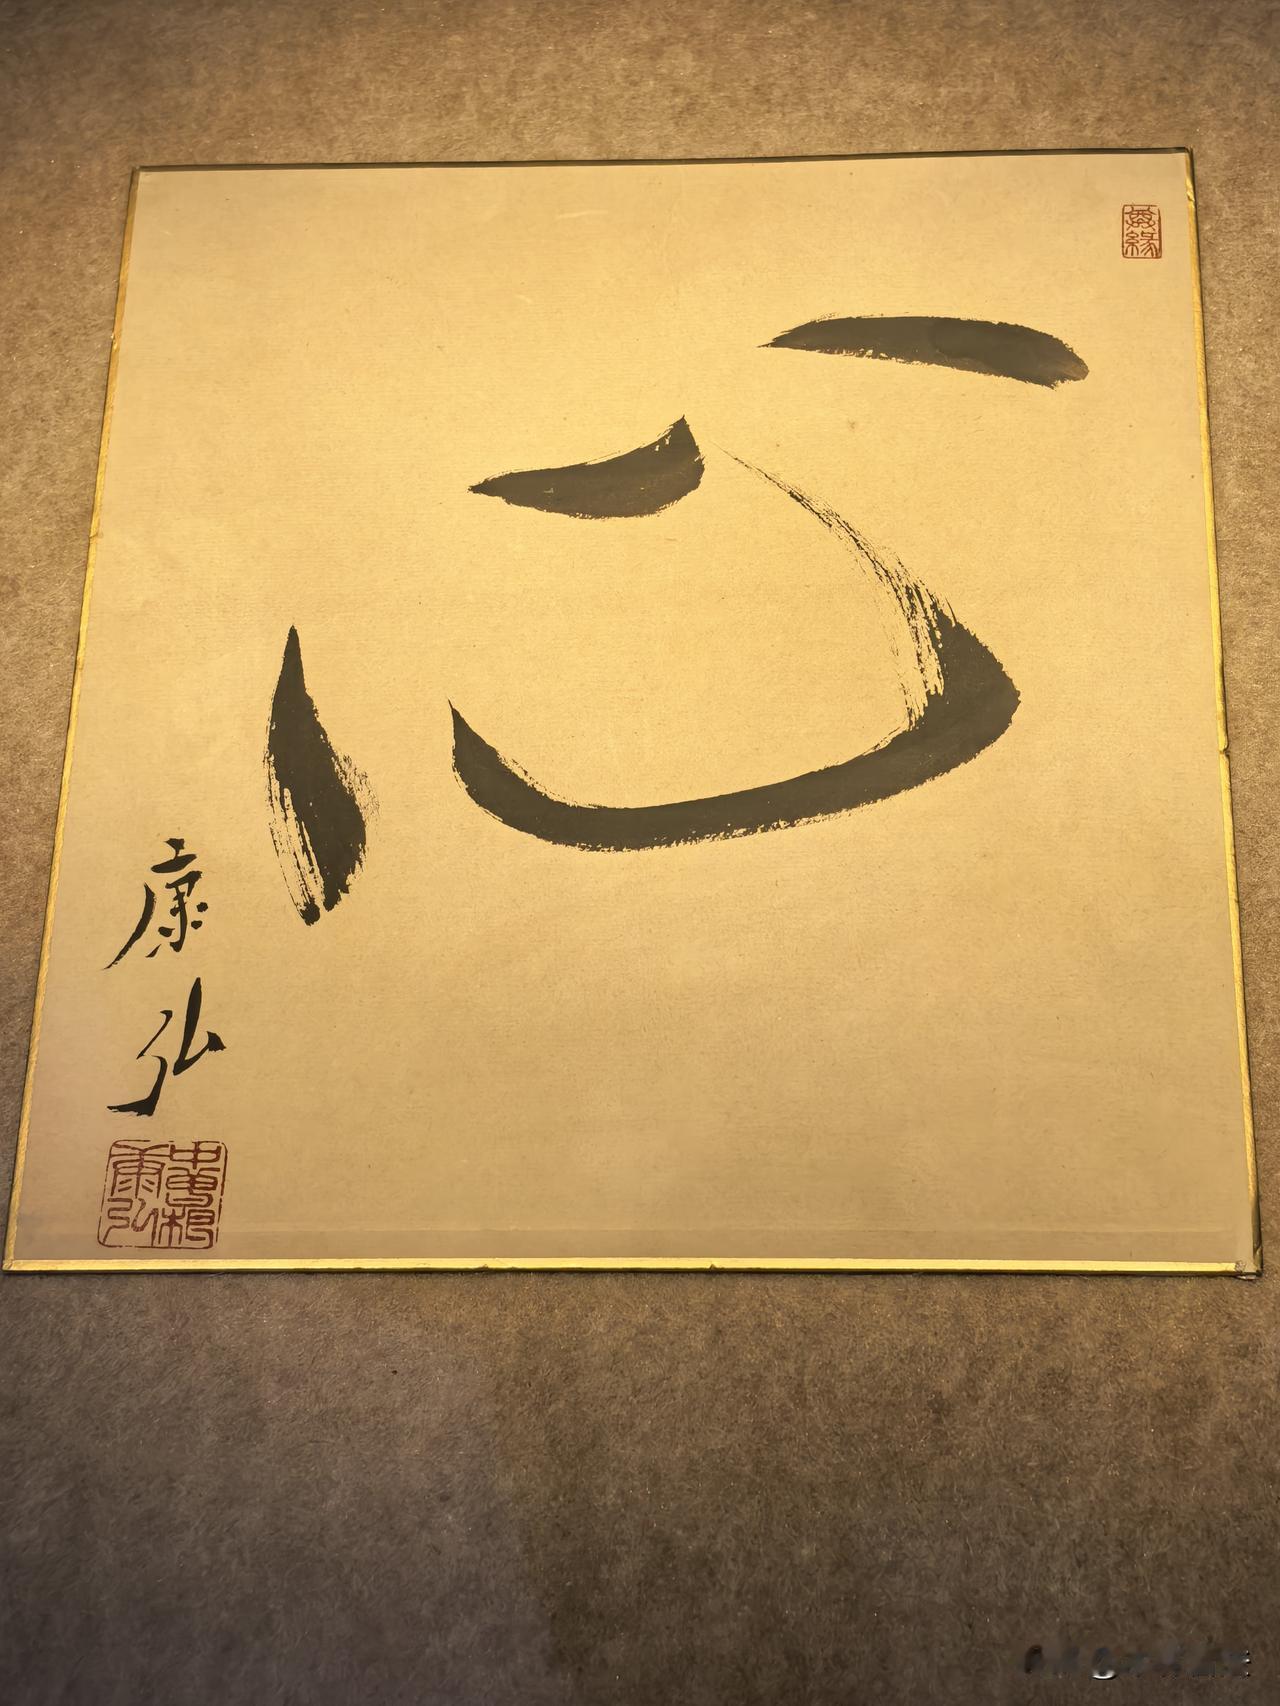 心
康弘
中曾根
康弘